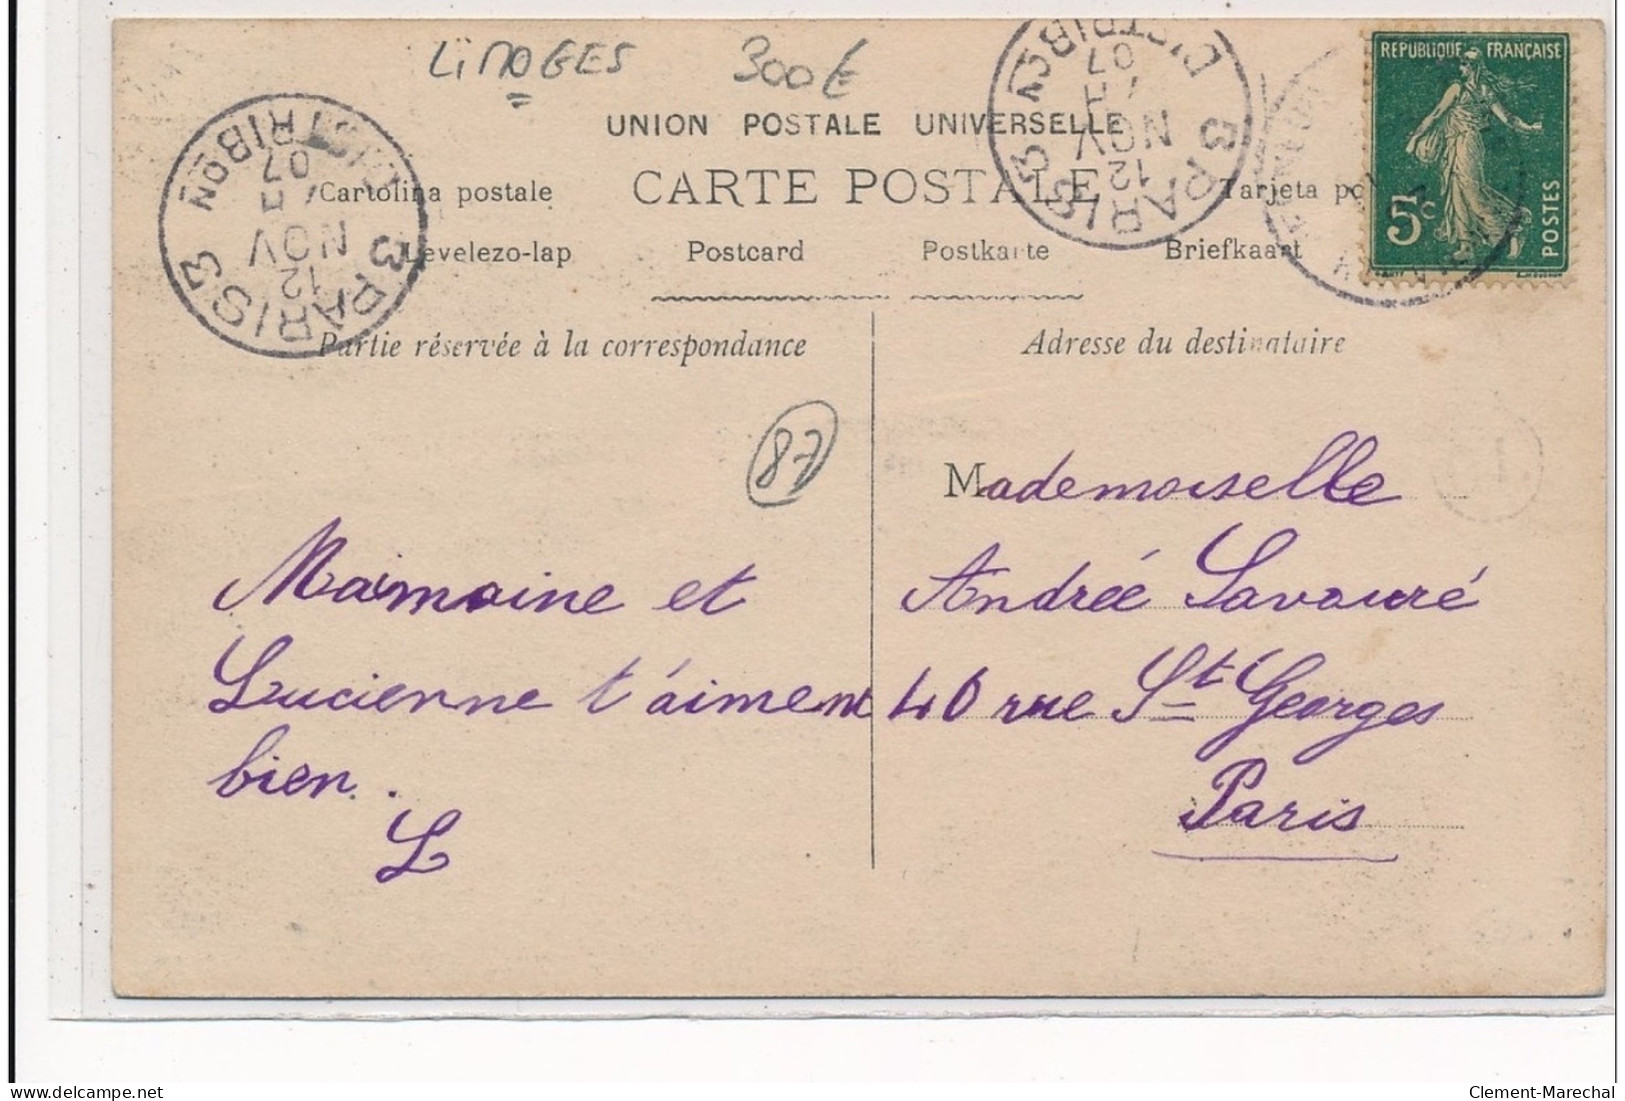 LIMOGES 300€
UNION POSTALE UNIVERSELLE
CARTE POSTALE
Cartolina postale
Tarjeta po
Levelezo-lap Postcard Postkarte Briefkaart
Partie réservée à la correspondance
Adresse du destinataire
REPUBLIQUE FRANÇAISE
5c
POSTES
3 PARIS 3
DISTRIBON
12
NOV
07
3 PARIS 3
DISTRIBON
12
NOV
07
87
Maimaine et
Lucienne t'aiment
bien.
L
Mademoiselle
Andrée Savouré
40 rue St Georges
Paris
Clement-Marechal